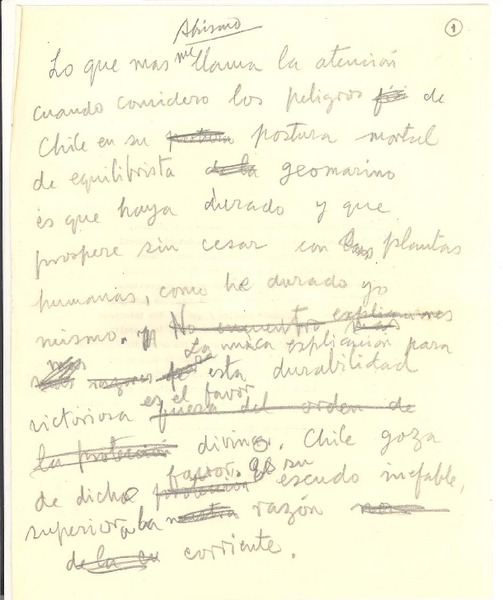 Abismo
1
Lo que mas me llama la atención
cuando considero los peligros de
Chile en su postura mortal
de equilibrista de la geomarino
es que haya durado y que
prospere sin cesar con las plantas
humanas, como he durado yo
mismo. No encuentro explicaciones
La unica explicación para
mas razones de esta durabilidad
es el favor
victoriosa fuera del orden de
la protección divino. Chile goza
favor, de su
de dicho protección escudo inefable,
superior a la nuestra razón
de la corriente.